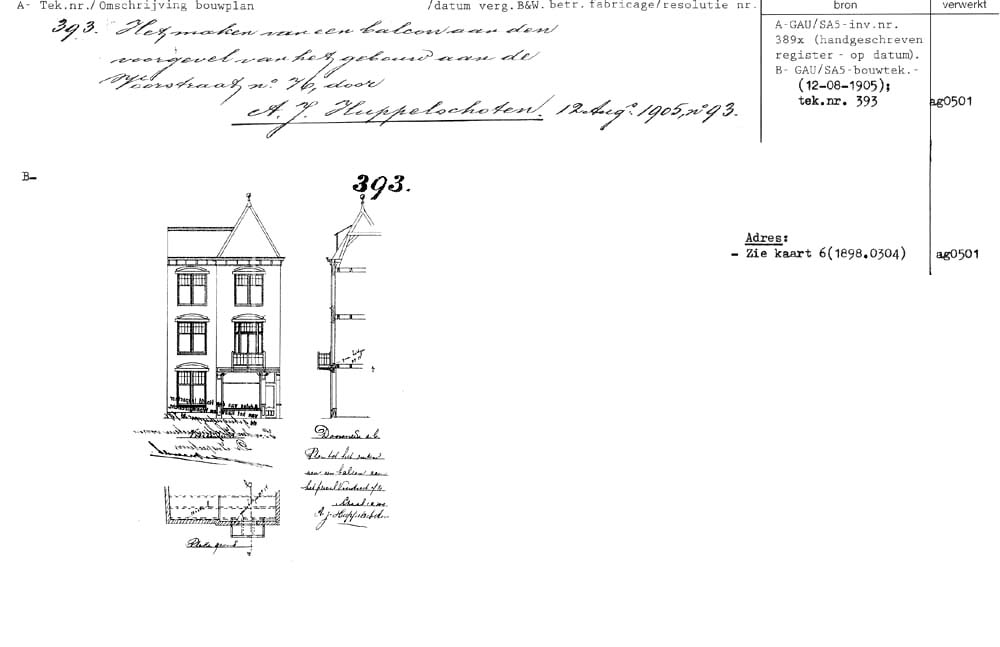 A- Tek.nr./ Omschrijving bouwplan /datum verg. B&W. betr. fabricage/resolutie nr. bron verwerkt
393. Het maken van een balcon aan den
voorgevel van het gebouw aan de
Voorstraat, no. 76, door
A. J. Huppelschoten. 12 Aug. 1905, no 93.
A-GAU/SA5-inv.nr.
389x (handgeschreven
register - op datum).
B- GAU/SA5-bouwtek.-
(12-08-1905);
tek.nr. 393
ag0501
B-
393.
Adres:
- Zie kaart 6(1898.0304)
ag0501
Plan tot het maken
van een balcon aan
Plattegrond